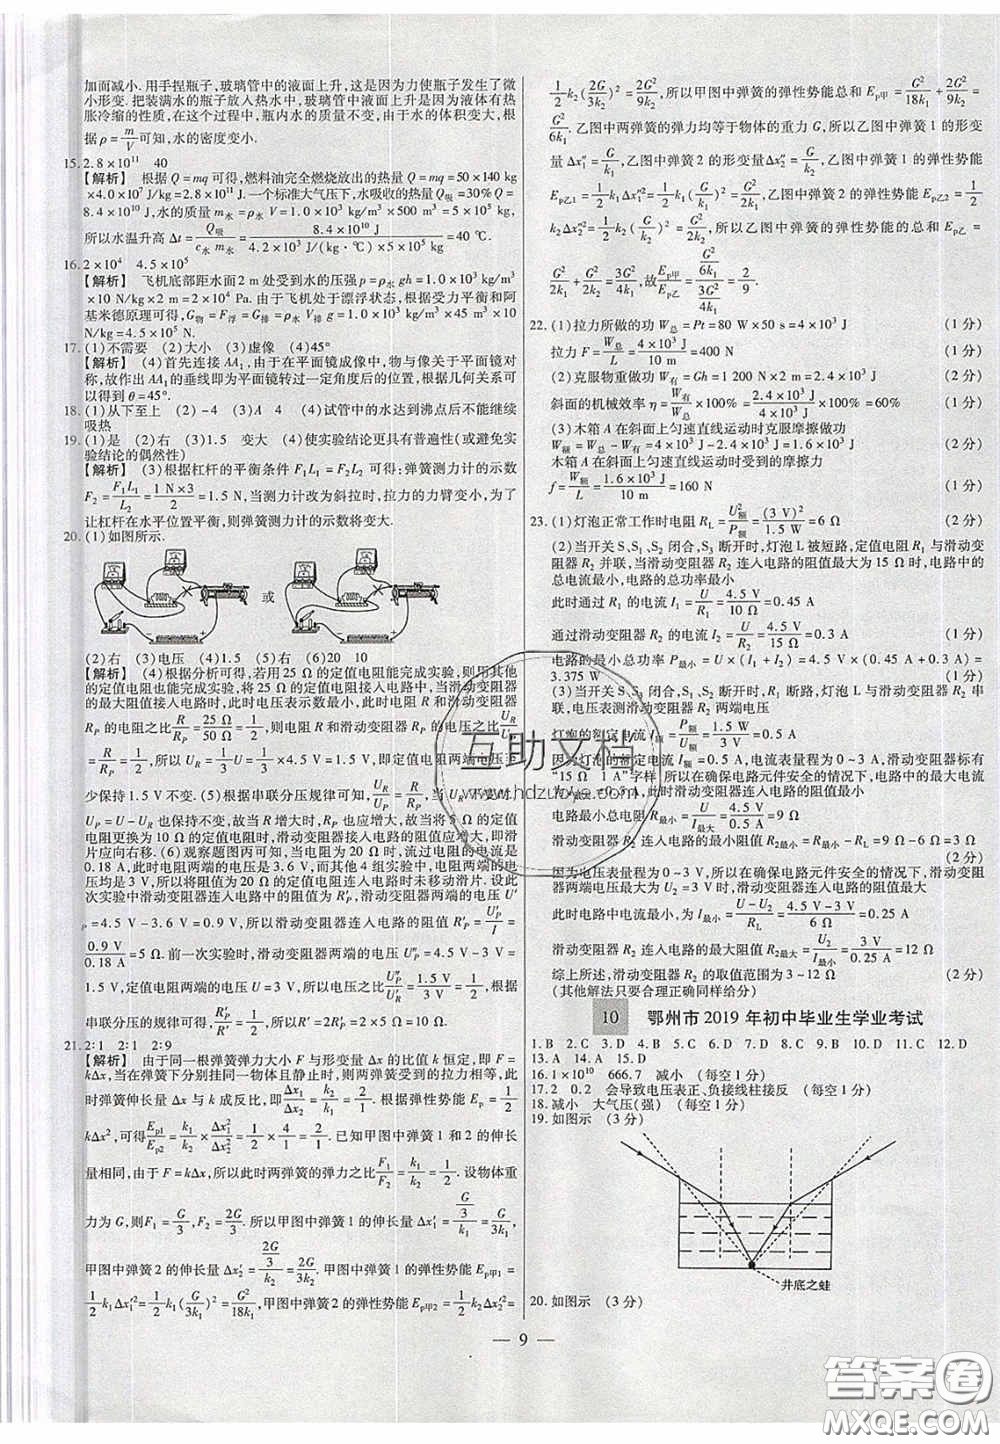 加而减小. 用手捏瓶子,玻璃管中的液面上升,这是因为力使瓶子发生了微
小形变. 把装满水的瓶子放入热水中,玻璃管中液面上升是因为液体有热
胀冷缩的性质,在这个过程中,瓶内水的质量不变,由于水的体积变大,根
据 ρ=m/V 可知,水的密度变小.
15. 2.8×10¹¹ 40
【解析】 根据 Q=mq 可得,燃料油完全燃烧放出的热量 Q=mq=50×140 kg
×4.0×10⁷ J/kg=2.8×10¹¹ J. 一个标准大气压下,水吸收的热量 Q吸=30%Q=
8.4×10¹⁰ J,水的质量 m水=ρ水V=1.0×10³ kg/m³×500 m³=5×10⁵ kg,
所以水温升高 Δt=Q吸/(c水m水)=8.4×10¹⁰ J/(4.2×10³ J/(kg·℃)×5×10⁵ kg)=40 ℃.
16. 2×10⁴ 4.5×10⁵
【解析】 飞机底部距水面 2 m 处受到水的压强 p=ρ水gh=1.0×10³ kg/m³
×10 N/kg×2 m=2×10⁴ Pa. 由于飞机处于漂浮状态,根据受力平衡和阿
基米德原理可得,G物=F浮=G排=ρ水V排g=1.0×10³ kg/m³×45 m³×10
N/kg=4.5×10⁵ N.
17. (1)不需要 (2)大小 (3)虚像 (4)45°
【解析】 (4)首先连接 AA₁,由于在平面镜成像中,物与像关于平面镜对
称,故作出 AA₁ 的垂线即为平面镜转过一定角度后的位置,根据几何关系可
以得到 θ=45°.
18. (1)从下至上 (2)-4 (3)A 4 (4)试管中的水达到沸点后不能继续
吸热
19. (1)是 (2)右 (3)1.5 变大 (4)使实验结论更具有普遍性(或避免实
验结论的偶然性)
【解析】 (3)根据杠杆的平衡条件 F₁L₁=F₂L₂ 可得:弹簧测力计的示数
F₂=F₁L₁/L₂=1 N×3/2=1.5 N,当测力计改为斜拉时,拉力的力臂变小,为了
让杠杆在水平位置平衡,则弹簧测力计的示数将变大.
20. (1)如图所示.
或
(2)右 (3)电压 (4)1.5 (5)右 (6)20 10
【解析】 (4)根据分析可得,若用 25 Ω 的定值电阻能完成实验,则用其他
的定值电阻也能完成实验,将 25 Ω 的定值电阻接入电路中,当滑动变阻器
的最大阻值接入电路时,此时电压表示数最小,此时电阻 R 和滑动变阻器
R_P 的电阻之比 R/R_P=25 Ω/50 Ω=1/2,则电阻 R 和滑动变阻器 R_P 的电压之比 U_R/U_P
=R/R_P=1/2,所以 U_R=1/3U=1/3×4.5 V=1.5 V,则定值电阻两端电压至
少保持 1.5 V 不变. (5)根据串联分压规律可知,U_R/U_P=R/R_P,当 U_R 不变时,
U_P=U-U_R 也保持不变,故当 R 增大时,R_P 也应增大,故当将 5 Ω 的定值
电阻更换为 10 Ω 的定值电阻时,滑动变阻器接入电路的阻值应增大,即滑
片应向右移. (6)观察题图丙可知,当电阻为 20 Ω 时,流过电阻的电流为
0.18 A,此时电阻两端的电压是 3.6 V,而其他 4 组实验中,电阻两端的电
压均是 3 V,所以将阻值为 20 Ω 的电阻连入电路时未移动滑片. 设此
次实验中滑动变阻器连入电路中的阻值为 R′_P,滑动变阻器两端的电压 U′
_P=4.5 V-3.6 V=0.9 V,所以滑动变阻器连入电路的阻值 R′_P=U′_P/I=
0.9 V/0.18 A=5 Ω. 前一次实验时,滑动变阻器两端的电压 U″_P=4.5 V-3 V=
1.5 V,定值电阻两端的电压 U=3 V,所以电压之比 U″_P/U_R=1.5 V/3 V=1/2,根据
串联分压的规律可得,R′_P/R′=1/2,所以 R′=2R′_P=2×5 Ω=10 Ω.
21. 2∶1 2∶1 2∶9
【解析】 由于同一根弹簧弹力大小 F 与形变量 Δx 的比值 k 恒定,即 F=
kΔx,在当弹簧下分别挂同一物体且静止时,则两弹簧受到的拉力相等,此
时弹簧伸长量 Δx 与 k 成反比,即 Δx₁/Δx₂=k₂/k₁=2/1. 根据弹性势能 E_p=1/2
kΔx²,可得 E_p1/E_p2=k₁/k₂×Δx₁²/Δx₂²=1/2×4/1=2/1. 已知甲图中弹簧 1 和 2 的伸长
量相同,由于 F=kΔx,所以此时两弹簧的弹力之比 F₁/F₂=k₁/k₂=1/2. 设物体重
力为 G,则F₁=G/3,F₂=2G/3. 所以甲图中弹簧 1 的伸长量 Δx′₁=(G/3)/k₁=G/3k₁,
甲图中弹簧 2 的伸长量 Δx′₂=(2G/3)/k₂=2G/3k₂. 甲图中弹簧 1 的弹性势能 E_p甲1=
1/2k₁Δx′₁²=1/2k₁(G/3k₁)²=G²/18k₁,甲图中弹簧 2 的弹性势能 E_p甲2=1/2k₂Δx′₂²=
1/2k₂(2G/3k₂)²=2G²/9k₂,所以甲图中弹簧的弹性势能总和 E_p甲=G²/18k₁+2G²/9k₂=
G²/6k₁. 乙图中两弹簧的弹力均等于物体的重力 G,所以乙图中弹簧 1 的形变
量 Δx″₁=G/k₁,乙图中弹簧 2 的形变量 Δx″₂=G/k₂,乙图中弹簧 1 的弹性势能
E_p乙1=1/2k₁Δx″₁²=1/2k₁(G/k₁)²=G²/2k₁,乙图中弹簧 2 的弹性势能 E_p乙2=1/2
k₂Δx″₂²=1/2k₂(G/k₂)²=G²/2k₂,所以乙图中弹簧的弹性势能总和 E_p乙=
G²/2k₁+G²/2k₂=3G²/4k₁,故 E_p甲/E_p乙=(G²/6k₁)/(3G²/4k₁)=2/9.
22. (1)拉力所做的功 W总=Pt=80 W×50 s=4×10³ J (1 分)
拉力 F=W总/L=4×10³ J/10 m=400 N (1 分)
(2)克服物重做功 W有=Gh=1 200 N×2 m=2.4×10³ J (2 分)
斜面的机械效率 η=W有/W总×100%=2.4×10³ J/4×10³ J×100%=60% (1 分)
(3)木箱 A 在斜面上匀速直线运动时克服摩擦做功
W额=W总-W有=4×10³ J-2.4×10³ J=1.6×10³ J (1 分)
木箱 A 在斜面上匀速直线运动时受到的摩擦力
f=W额/L=1.6×10³ J/10 m=160 N (1 分)
23. (1)灯泡正常工作时电阻 R_L=U额²/P额=(3 V)²/1.5 W=6 Ω (2 分)
(2)当开关 S、S₁、S₂ 闭合,S₃ 断开时,灯泡 L 被短路,定值电阻 R₁ 与滑动变
阻器 R₂ 并联,当滑动变阻器 R₂ 连入电路的阻值最大为 15 Ω 时,电路中的
总电流最小,电路的总功率最小
此时通过 R₁ 的电流 I₁=U/R₁=4.5 V/10 Ω=0.45 A (1 分)
通过滑动变阻器 R₂ 的电流 I₂=U/R₂=4.5 V/15 Ω=0.3 A (1 分)
电路的最小总功率 P最小=U(I₁+I₂)=4.5 V×(0.45 A+0.3 A)=
3.375 W (1 分)
(3)当开关 S、S₃ 闭合,S₁、S₂ 断开时,R₁ 断路,灯泡 L 与滑动变阻器 R₂ 串
联,电压表测滑动变阻器 R₂ 两端电压
灯泡的额定电流 I额=P额/U额=1.5 W/3 V=0.5 A
因为灯泡的额定电流 I额=0.5 A,电流表量程为 0~3 A,滑动变阻器标有
“15 Ω 1 A”字样,所以在确保电路元件安全的情况下,电路中的最大电流
I最大=0.5 A,此时滑动变阻器连入电路的阻值最小
电路最小总电阻 R最小=U/I最大=4.5 V/0.5 A=9 Ω
滑动变阻器 R₂ 连入电路的最小阻值 R₂最小=R最小-R_L=9 Ω-6 Ω=3 Ω
(2 分)
因为电压表量程为 0~3 V,所以在确保电路元件安全的情况下,滑动变阻
器两端电压最大为 U₂=3 V 时,滑动变阻器连入电路的阻值最大
此时电路中电流最小,为 I最小=(U-U₂)/R_L=(4.5 V-3 V)/6 Ω=0.25 A
滑动变阻器 R₂ 连入电路的最大阻值 R₂最大=U₂/I最小=3 V/0.25 A=12 Ω
综上所述,滑动变阻器 R₂ 的取值范围为 3~12 Ω (2 分)
(其他解法只要合理正确同样给分)
10 鄂州市 2019 年初中毕业生学业考试
1. B 2. C 3. D 4. B 5. C 6. B 7. B 8. B 9. D 10. D 11. C 12. D
13. A 14. A 15. D
16. 1×10¹⁰ 666.7 减小 (每空 1 分)
17. 2 0.2 会导致电压表正、负接线柱接反 (每空 1 分)
18. 减小 大气压(强) (每空 1 分)
19. 如图示 (3 分)
井底之蛙
20. 如图示 (3 分)
— 9 —
互助文档
www.hdzuoye.com
答案圈
MXQE.COM